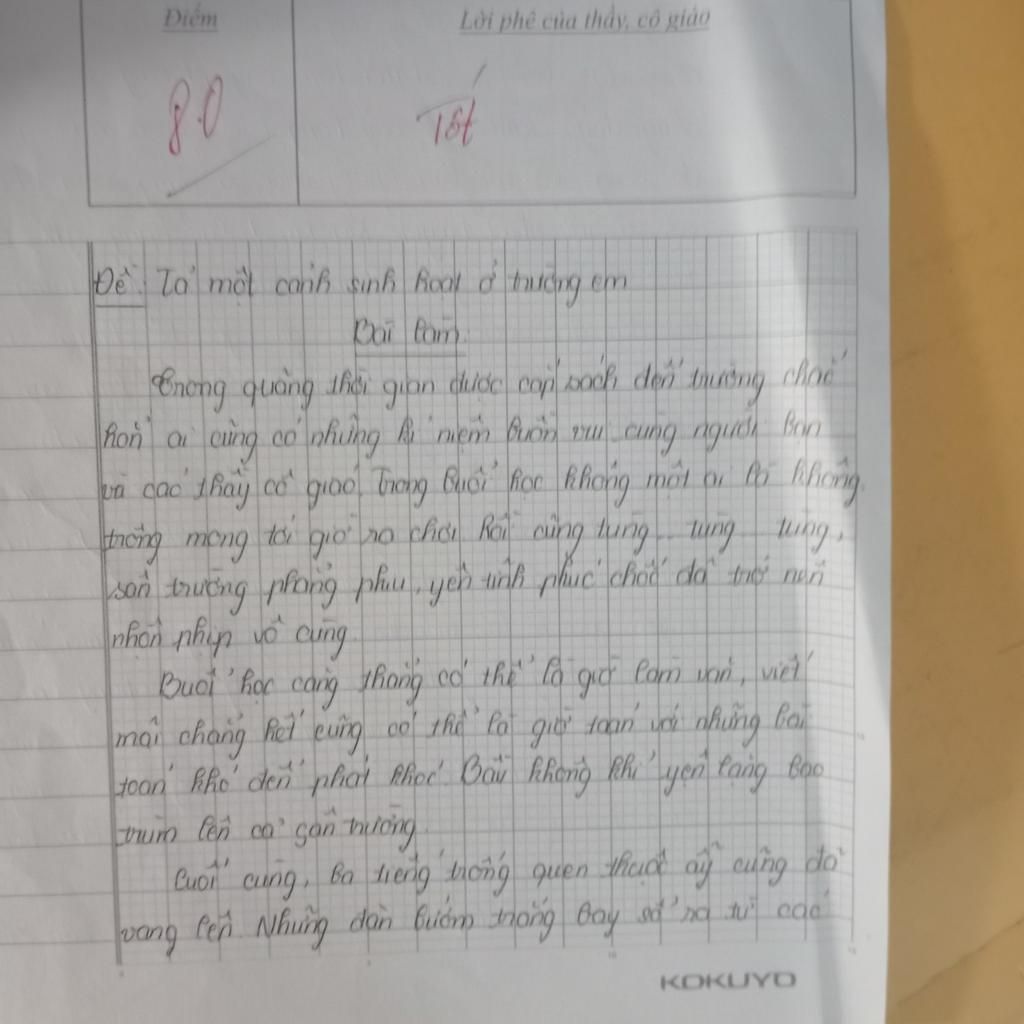 Điểm
Lời phê của thầy, cô giáo
8.0
Tốt
Đề: Tả một cảnh sinh hoạt ở trường em
Bài làm
Trong quãng thời gian được cắp sách đến trường chắc
hẳn ai cũng có những kỉ niệm buồn vui cùng người bạn
và các thầy cô giáo. Trong buổi học không một ai là không
trông mong tới giờ ra chơi. Rồi cũng tùng tùng tùng,
sân trường phẳng phiu, yên tĩnh phút chốc đã trở nên
nhộn nhịp vô cùng.
Buổi học căng thẳng có thể là giờ làm văn, viết
mãi chẳng hết cũng có thể là giờ toán với những bài
toán khó đến phát khóc. Bầu không khí yên lặng bao
trùm lên cả sân trường.
Cuối cùng, ba tiếng trống quen thuộc ấy cũng đã
vang lên. Những đàn bướm trắng bay sà ra từ các
KOKUYO